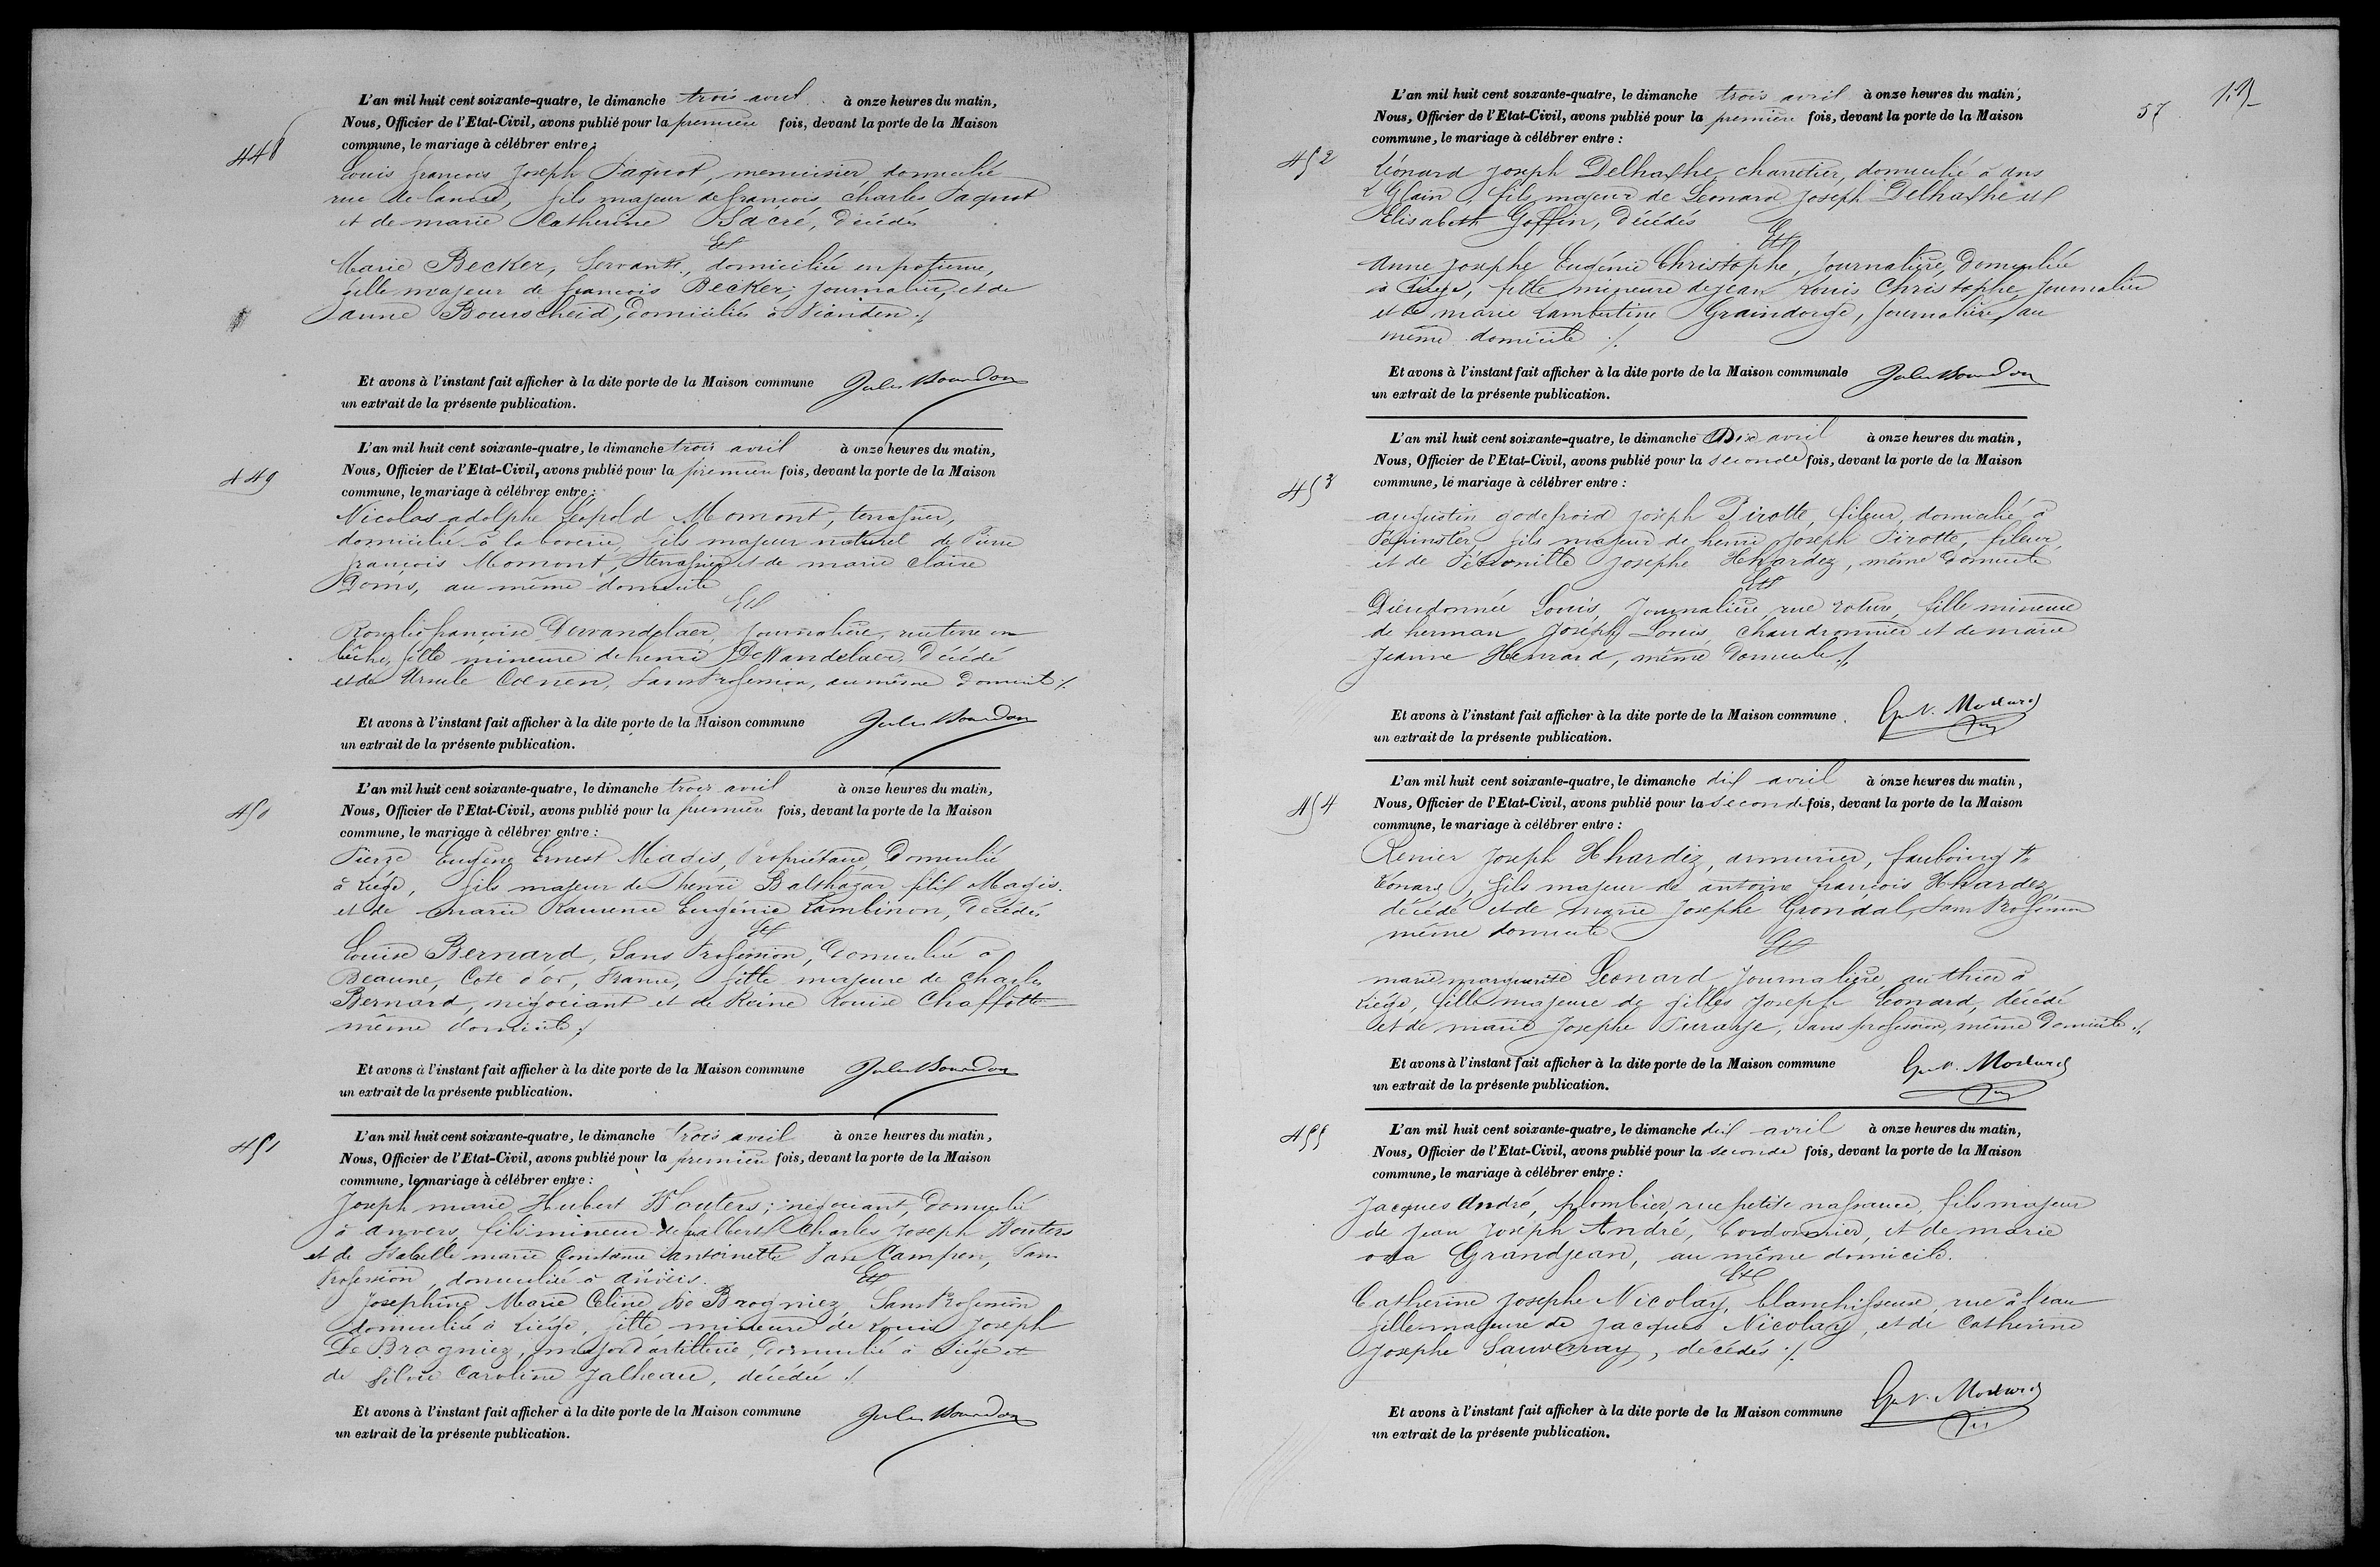 448
L'an mil huit cent soixante-quatre, le dimanche trois avril à onze heures du matin,
Nous, Officier de l'Etat-Civil, avons publié pour la première fois, devant la porte de la Maison
commune, le mariage à célébrer entre :
Louis françois Joseph Paquot, menuisier, domicilié
rue de fils majeur de françois Charles Paquot
et de marie Catherine Sacré, décédés
Et
Marie Becker, Servante, domiciliée en potierue,
fille majeur de françois Becker, journalier, et de
anne Bourscheid, domiciliés à Vianden ./.
Et avons à l'instant fait afficher à la dite porte de la Maison commune Jules Bourdon
un extrait de la présente publication.
449
L'an mil huit cent soixante-quatre, le dimanche trois avril à onze heures du matin,
Nous, Officier de l'Etat-Civil, avons publié pour la première fois, devant la porte de la Maison
commune, le mariage à célébrer entre :
Nicolas adolphe Léopold Momont, terrassier,
domicilié à la boverie, fils majeur naturel de Pierre
françois Momont, terrassier et de marie claire
Doms, au même domicile
Et
Rosalie françoise Dewandelaer, journalière, rue terre en
bêche, fille mineure de henri DeWandelaer, décédé
et de Ursule Coenen, sans Profession, au même domicile ./.
Et avons à l'instant fait afficher à la dite porte de la Maison commune Jules Bourdon
un extrait de la présente publication.
450
L'an mil huit cent soixante-quatre, le dimanche trois avril à onze heures du matin,
Nous, Officier de l'Etat-Civil, avons publié pour la première fois, devant la porte de la Maison
commune, le mariage à célébrer entre :
Pierre Eugène Ernest Magis, Propriétaire, Domicilié
à Liége, fils majeur de henri Balthazar félix Magis
et de marie Laurence Eugénie Lambinon, décédés
Et
Louise Bernard, Sans Profession, domiciliée à
Beaune, Cote d'or, France, fille majeure de Charles
Bernard, négociant et de Reine Louise Chaffotte
même domicile ./.
Et avons à l'instant fait afficher à la dite porte de la Maison commune Jules Bourdon
un extrait de la présente publication.
451
L'an mil huit cent soixante-quatre, le dimanche trois avril à onze heures du matin,
Nous, Officier de l'Etat-Civil, avons publié pour la première fois, devant la porte de la Maison
commune, le mariage à célébrer entre :
Joseph marie Hubert Wouters, négociant, domicilié
à anvers, fils mineur de albert Charles Joseph Wouters
et de Isabelle marie Constance antoinette Van Campen, Sans
Profession, domiciliée à anvers.
Et
Joséphine Marie Céline De Brogniez, Sans Profession
domiciliée à Liége, fille mineure de Louis Joseph
De Brogniez, major d'artillerie, domicilié à Liége et
de Silvie Caroline Jalheau, décédée ./.
Et avons à l'instant fait afficher à la dite porte de la Maison commune Jules Bourdon
un extrait de la présente publication.
57
452
L'an mil huit cent soixante-quatre, le dimanche trois avril à onze heures du matin,
Nous, Officier de l'Etat-Civil, avons publié pour la première fois, devant la porte de la Maison
commune, le mariage à célébrer entre :
Léonard Joseph Delhaxhe, charretier, domicilié à ans
& Glain, fils majeur de Leonard Joseph Delhaxhe et
Elisabeth Goffin, décédés
Et
Anne Josephe Eugénie Christophe, journalière, Domiciliée
à Liége, fille mineure de jean Louis Christophe, journalier
et de marie Lambertine Graindorge, journalière, au
même domicile ./.
Et avons à l'instant fait afficher à la dite porte de la Maison communale Jules Bourdon
un extrait de la présente publication.
453
L'an mil huit cent soixante-quatre, le dimanche Dix avril à onze heures du matin,
Nous, Officier de l'Etat-Civil, avons publié pour la seconde fois, devant la porte de la Maison
commune, le mariage à célébrer entre :
augustin godefroid joseph Pirotte, fileur, domicilié à
Pépinster, fils majeur de henri Joseph Pirotte, fileur,
et de Pétronille Josephe Xhardez, même domicile
Et
Dieudonnée Louis, Journalière, rue roture, fille mineure
de herman Joseph Louis, Chaudronnier et de marie
Jeanne Henrard, même Domicile ./.
Et avons à l'instant fait afficher à la dite porte de la Maison commune
un extrait de la présente publication.
454
L'an mil huit cent soixante-quatre, le dimanche dix avril à onze heures du matin,
Nous, Officier de l'Etat-Civil, avons publié pour la seconde fois, devant la porte de la Maison
commune, le mariage à célébrer entre :
Renier Joseph Xhardéz, armurier, faubourg Ste
Léonard, fils majeur de antoine françois Xhardez
décédé et de marie Josephe Grondal, Sans Profession
même domicile
Et
marie marguerite Leonard, Journalière, au thier à
Liége, fille majeure de gilles Joseph Léonard, décédé
et de marie Josephe Sans profession, même Domicile ./.
Et avons à l'instant fait afficher à la dite porte de la Maison commune
un extrait de la présente publication.
455
L'an mil huit cent soixante-quatre, le dimanche dix avril à onze heures du matin,
Nous, Officier de l'Etat-Civil, avons publié pour la seconde fois, devant la porte de la Maison
commune, le mariage à célébrer entre :
Jacques André, plombier, rue petite nassaue, fils majeur
de Jean Joseph André, Cordonnier, et de marie
oda Grandjean, au même domicile.
Et
Catherine Josephe Nicolay, blanchisseuse, rue à l'eau
fille majeure de Jacques Nicolay, et de Catherine
Josephe Sauvenay, décédés ./.
Et avons à l'instant fait afficher à la dite porte de la Maison commune
un extrait de la présente publication.